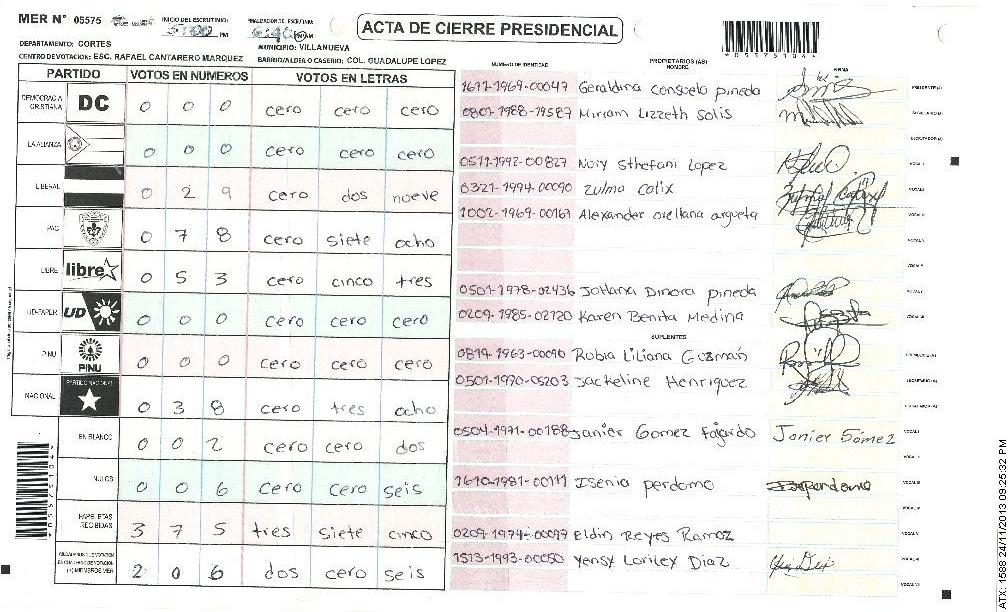 MER N° 05575
INICIO DEL ESCRUTINIO:
5:00 PM
6:40 PM
ACTA DE CIERRE PRESIDENCIAL
*05575104*
DEPARTAMENTO: CORTES
MUNICIPIO: VILLANUEVA
CENTRO DE VOTACION: ESC. RAFAEL CANTARERO MARQUEZ
BARRIO/ALDEA O CASERIO: COL. GUADALUPE LOPEZ
PARTIDO VOTOS EN NUMEROS VOTOS EN LETRAS
DEMOCRACIA CRISTIANA DC 0 0 0 cero cero cero
LA ALIANZA 0 0 0 cero cero cero
LIBERAL 0 2 9 cero dos nueve
PAC 0 7 8 cero siete ocho
LIBRE libre 0 5 3 cero cinco tres
UD-FAPER UD 0 0 0 cero cero cero
PINU PINU 0 0 0 cero cero cero
NACIONAL PARTIDO NACIONAL 0 3 8 cero tres ocho
EN BLANCO 0 0 2 cero cero dos
NULOS 0 0 6 cero cero seis
PAPELETAS RECIBIDAS 3 7 5 tres siete cinco
2 0 6 dos cero seis
NUMERO DE IDENTIDAD PROPIETARIOS (AS) NOMBRE FIRMA
1611-1969-00047 Geraldina Consuelo pineda PRESIDENTE (A)
0801-1988-19587 Miriam Lizzeth Solis SECRETARIO (A)
ESCRUTADOR (A)
0511-1992-00827 Noiy Sthefani Lopez VOCAL I
0321-1994-00090 Zulma Calix VOCAL II
1002-1969-00167 Alexander orellana argueta VOCAL III
0501-1978-02436 Johana Dinora pineda
0209-1985-02720 Karen Benita Medina
SUPLENTES
0819-1963-00090 Rubia Liliana Guzmán
0501-1970-05203 Jackeline Henriquez
0504-1971-00188 Janier Gomez Fajardo Janier Gómez
1610-1981-00111 Isenia perdomo
0209-1974-00097 Eldin Reyes Ramoz
1513-1993-00050 Yensy Loriley Diaz
ATX: 1588 24/11/2013 09:25:32 PM